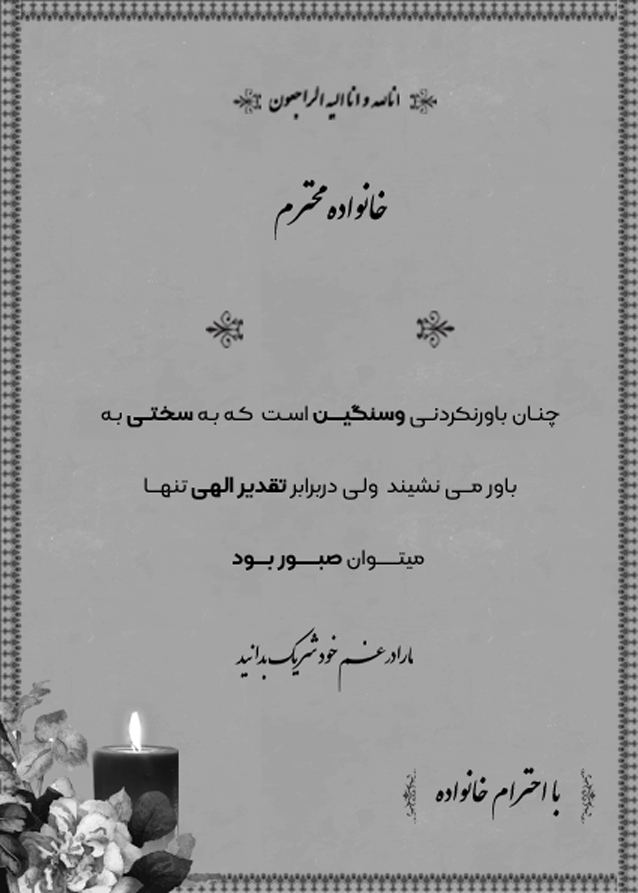 انالله و انا الیه الراجعون
خانواده محترم
چنان باورنکردنی وسنگین است که به سختی به
باور می نشیند ولی دربرابر تقدیر الهی تنها
میتوان صبور بود
مارادرغم خودشریک بدانید
با احترام خانواده